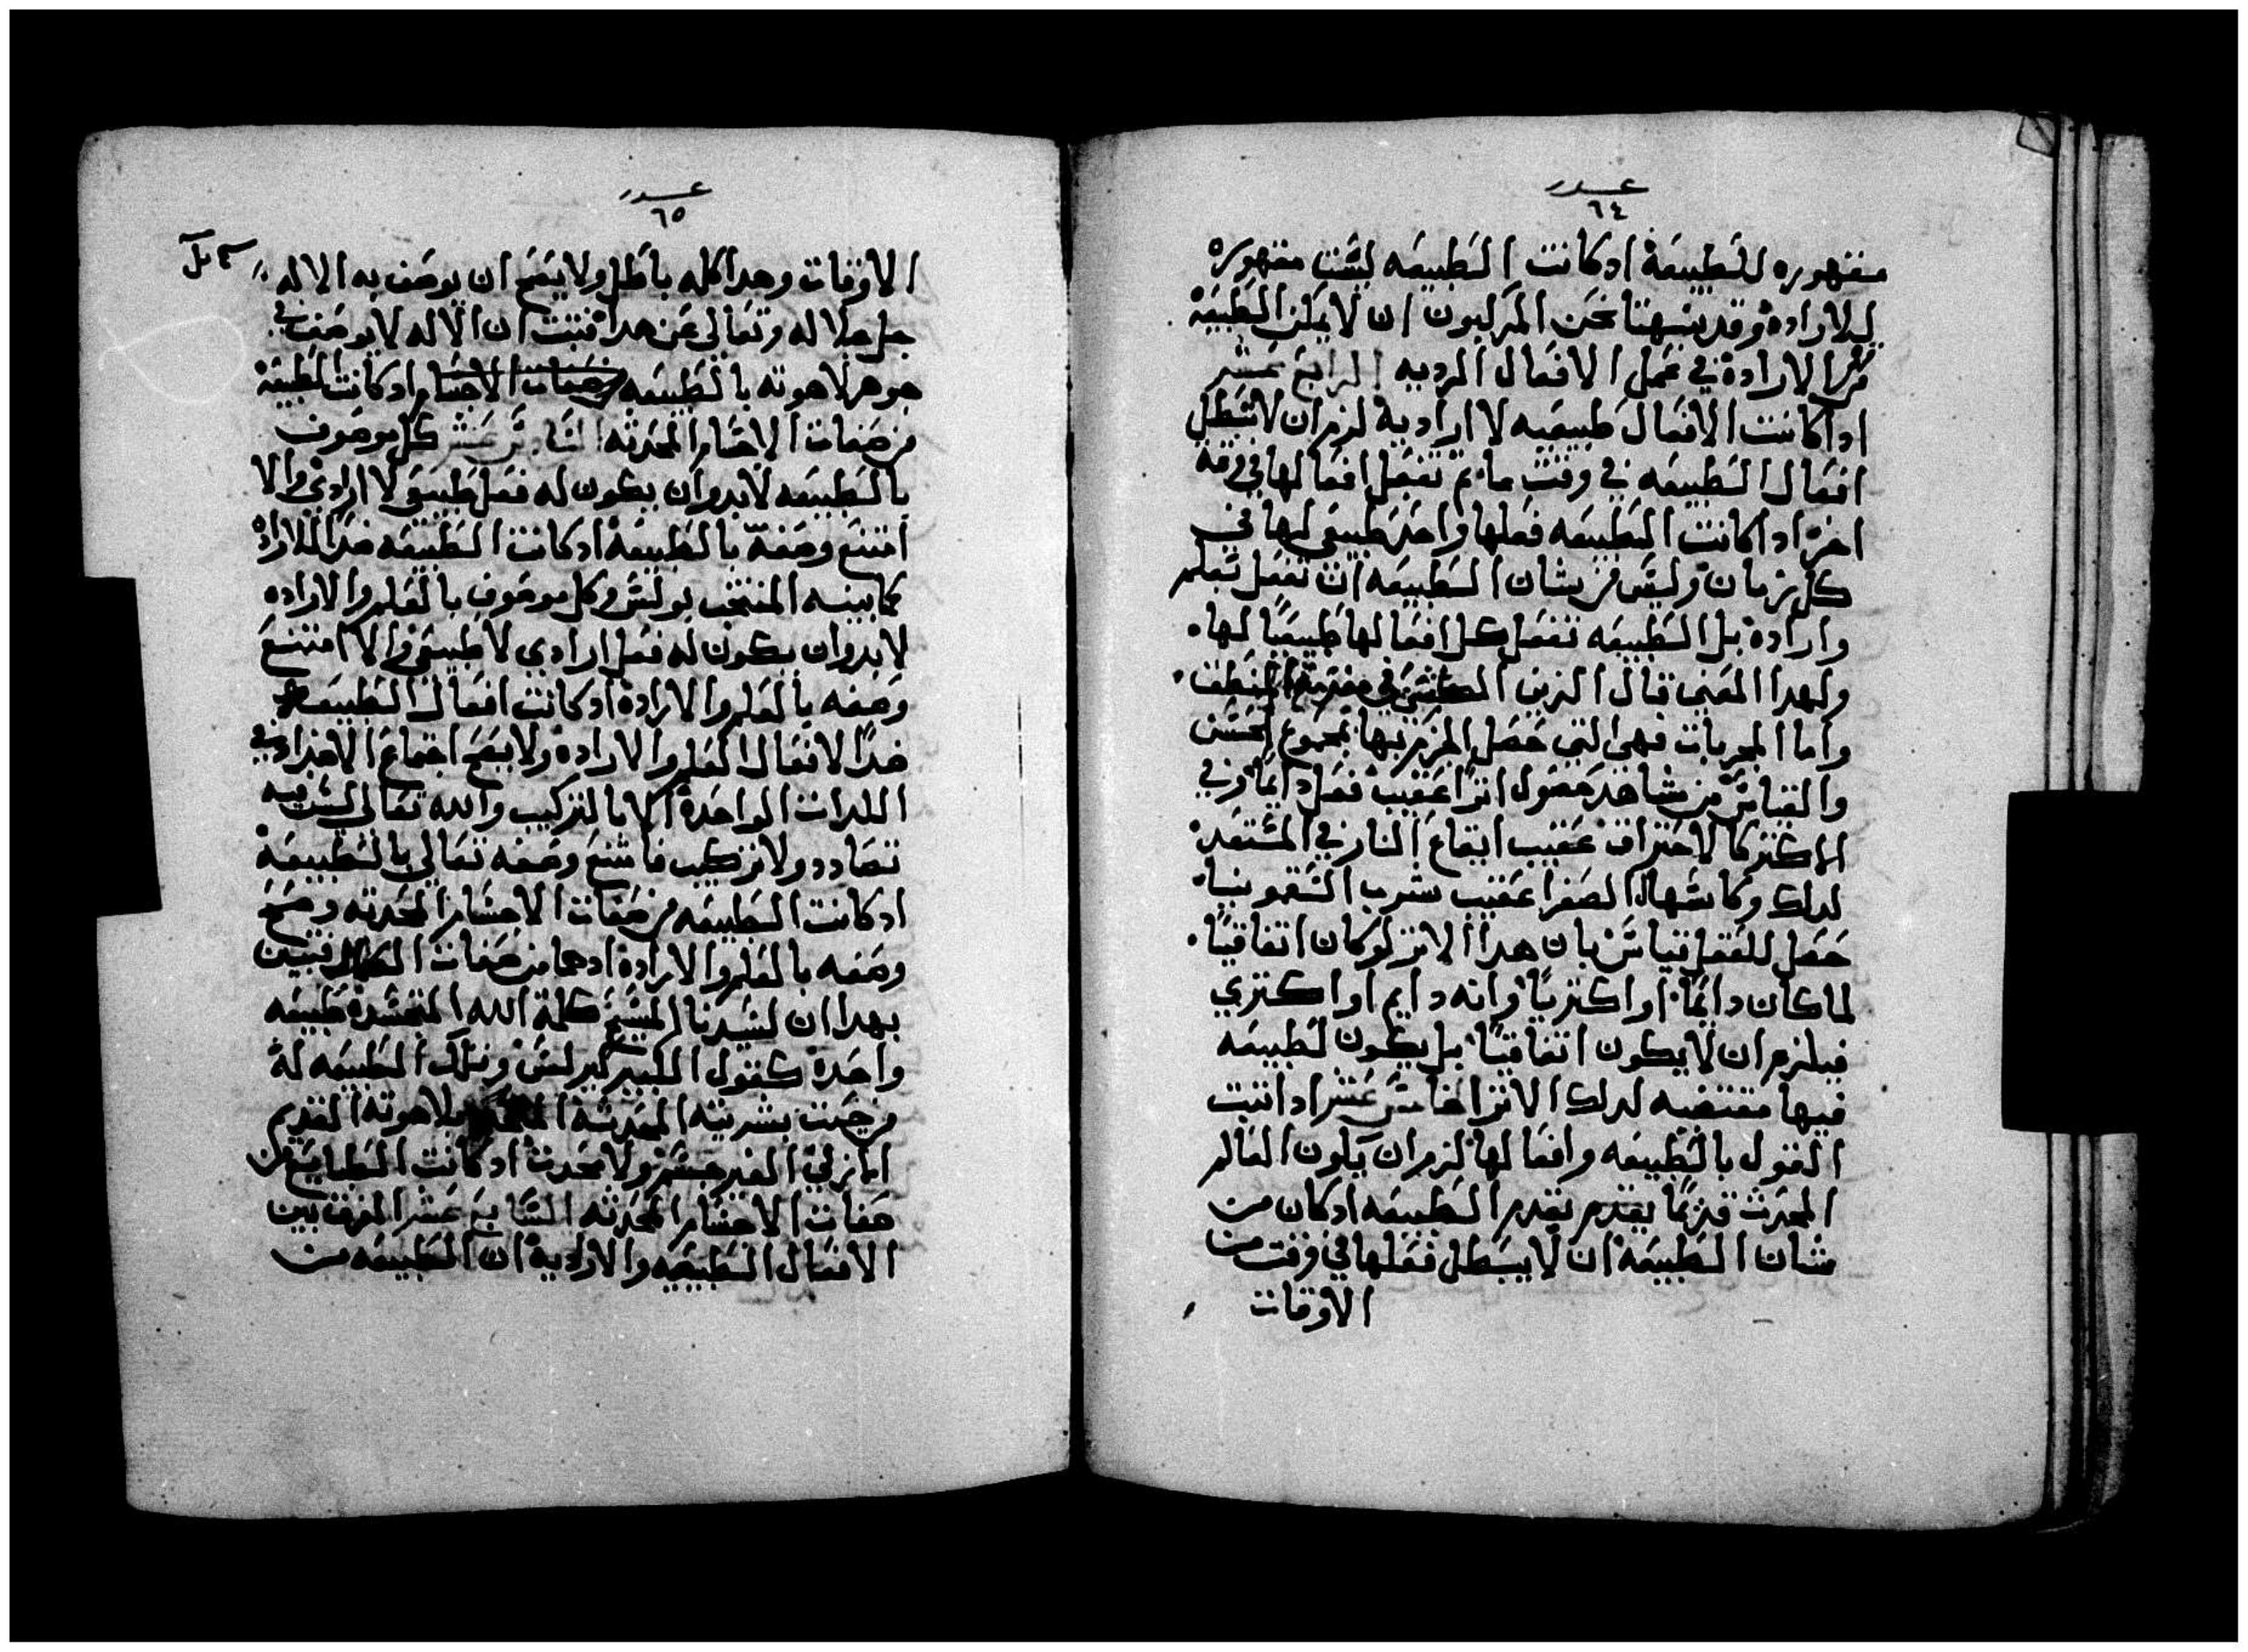 عدد
٦٤
مقهوره للطبيعة ادكانت الطبيعه ليست مقهوره
للاراده وقد ينبهنا نحن المركبون ان لا نمكن الطبيعة
من الاراده في عمل الافعال الرديه الرابع عشر
اداكانت الافعال طبيعيه لا اراديه لزم ان لا تبطل
افعال الطبيعه في وقت ما ثم تفعل افعالها في وقت
اخر اداكانت الطبيعه فعلها واحد طبيعي لها في
كل زمان وليس من شان الطبيعه ان تفعل بعلم
واراده بل الطبيعه تفعل كل افعالها طبيعيا لها
ولهدا المعنى قال الزين في مقدمة المنطق
واما المجربات فهي التي حصل الجزم بها بمجموع الحس
والقياس من شاهد حصول اثرا عقيب فعل دايما وفي
الاكتر كالاحتراق عقيب ايقاع النار في المستعد
لدلك وكاسهال الصفرا عقيب شرب السقمونيا
حصل للعقل قياس بان هدا الاتر لوكان اتفاقيا
لما كان دايما او اكتريا وانه دايم او اكتري
فيلزم ان لا يكون اتفاقيا بل يكون لطبيعه
فيها مقتضيه لدلك الاتر الخامس عشر ادا تبت
القول بالطبيعه وافعالها لزم ان يكون العالم
المحدث قديما بقدم الطبيعه ادكان من
شان الطبيعه ان لا يبطل فعلها في وقت من
الاوقات
عدد
٦٥
الاوقات وهدا كله باطل ولا يصح ان يوصف به الاله
جل جلاله وتعالى عن هدا فتبت ان الاله لا يوصف في
جوهر لاهوته بالطبيعه وصفات الاجسام ادكانت الطبيعة
من صفات الاجسام المحدثه السادس عشر كل موصوف
بالطبيعه لابد وان يكون له فعل طبيعي لا ارادي والا
امتنع وصفه بالطبيعه ادكانت الطبيعه ضد الاراده
كما بينه المنتخب بولس وكل موصوف بالعلم والاراده
لابد وان يكون له فعل ارادي لا طبيعي والا امتنع
وصفه بالعلم والاراده ادكانت افعال الطبيعه
ضدا لافعال العلم والاراده ولا يصح اجتماع الاضداد في
الدات الواحدة الا بالتركيب والله تعالى ليس فيه
تضادد ولا تركيب فامتنع وصفه تعالى بالطبيعه
ادكانت الطبيعه من صفات الاجسام المحدثه وصح
وصفه بالعلم والاراده ادهما من صفات الكمال فتبين
بهدا ان لسيدنا المسيح كلمة الله المتجسده طبيعه
واحده كقول الكبير كيرلس وتلك الطبيعه له
من حيت بشريته المحدثه بلاهوته القديم
الازلي الغير جسم ولا محدث ادكانت الطبايع من
صفات الاجسام المحدثه السابع عشر الفرق بين
الافعال الطبيعيه والاراديه ان الطبيعه من